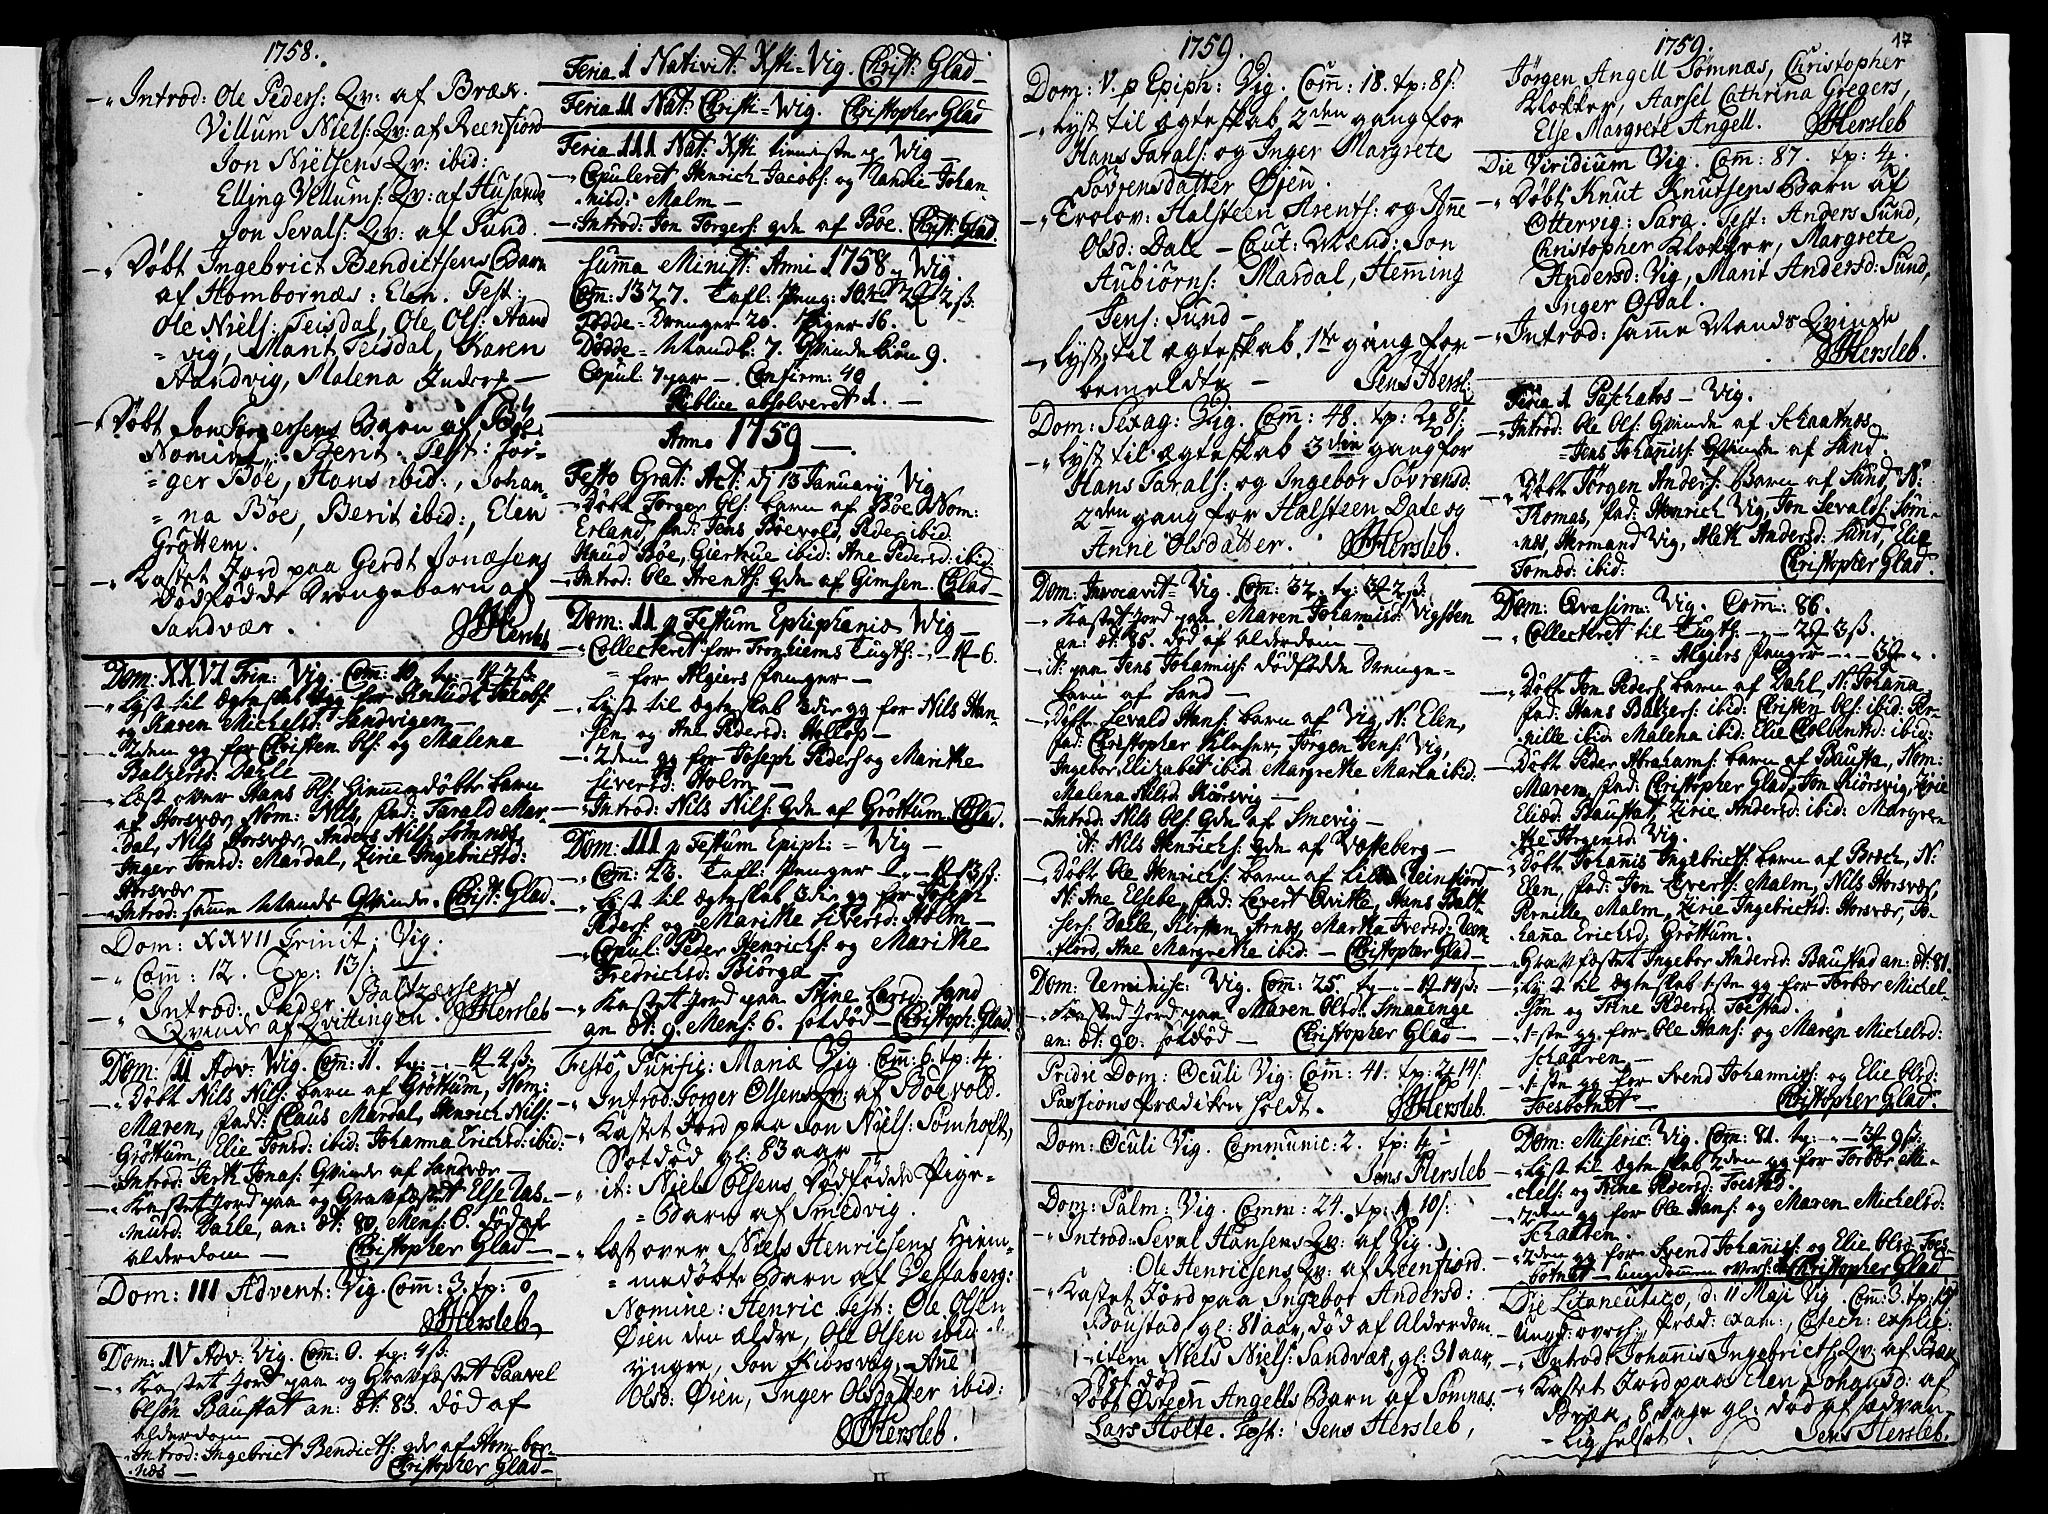 1758.
-„ Introd: Ole Peders: Qv: af Bræk.
Villum Niels: Qv: af Reenfiord
Jon Nielsens Qv: ibid:
Elling Vellums: Qv: af Husande
Jon Sevals: Qv: af Sund.
-„ Døbt Ingebrict Bendictsens Barn
af Hombornæs: Elen. Test:
Ole Niels: Teisdal, Ole Ols: Hand
= vig, Marit Teisdal, Karen
Handvig, Malena Inders: -
-„ Døbt Jon Torgersens Barn af Bøe.
Nomine: Berit: Test: Jør-
= ger Bøe, Hans ibid:, Johan-
= na Bøe, Berit ibid:, Elen
Grøttem.
-„ Kastet Jord paa Gerdt Jonæsens
dødfødde Drengebarn af
Sandvær.
JHersleb
Dom: XXVI Trin: Vig. Com: 10. tp:
-„ Lyst til Ægteskab 1 gg for Knudt Jacobs:
og Karen Michelsd: Sandvigen -
- 2den gg for Christen Ols: og Malena
Baltzersd: Dahle
- Læst over Hans Ols: hiemmedøbte barn
af Horsvær, Nom: Nils, fad: Tarald Mar-
dal, Nils Horsvær, Anders Nils: Sømnæs,
Inger Jonsd: Mardal, Zirie Ingebrictsd:
Horsvær -
- Introd: samme Mands Qvinde. Christ: Glad.
Dom: XXVII Trinit: Vig.
-„ Com: 12. Tp: 13 /:
-„ Introd: Peder Baltzersens
Qvinde af Qvittingen. JHersleb
Dom: II Adv: Vig. Com: 11. tp:
-„ Døbt Nils Nils: barn af Grøttum, Nom:
Maren, fad: Claus Mardal, Henrich Nils:
Grøttum, Elie Jonsd: ibid: Johanna Erichsd: ibid:
- Introd: Gerth Jonas: Qvinde af Sandvær -
- Kastet Jord paa og Gravfæstet Else Ras-
musd: Dahle, an: æt: 80. Mens: 6. død af
alderdom - Christopher Glad -
Dom: III Advent: Vig. Com: 3. tp: 0
JHersleb.
Dom: IV Adv: Vig. Com: 0. tp: 4ß:
-„ Kastet Jord paa og Gravfæstet Paavel
Olsøn Baustat an: æt: 83. død af
alderdom
- Introd: Ingebrict Bendicts: qde af Hombor-
næs - Christopher Glad -
Feria I Nativit: Xsti = Vig. Christ: Glad -
Feria II Nat: Christi = Vig. Christopher Glad
Feria III Nat: Xsti tieneste og Vig -
- Copuleret Henrich Jacobs: og Johan-
nisd: Malm -
- Introd: Jon Torgers: qde af Bøe. Christ: Glad.
Summa Minist: Anni 1758 Vig.
Com: 1327. Tafl: Peng:
Fødde = Drenger 20. Piger 16.
Døde = Mandk: 7. Qvindekiøn 9.
Copul: 7 par -. Confirm: 40
Publice absolveret 1. -
Anno 1759 -
Festo Grat: Act: d 13 Januarij Vig
- Døbt Torger Ols: barn af Bøe Nom:
Erland, fad: Jens Bøevold, Peder ibid:
Knud Bøe, Giertrue ibid: Ane Pedersd: ibid:
- Introd: Ole Arents: Qde af Gimsen. Glad -
Dom: II p Festum Epiphaniæ Vig -
- Collecteret for Tronhiems Tugth:
= for Algiers Fanger -
- Lyst til Ægteskab 3die gg for Nils Han-
sen og Ane Pedersd: Hollop -
- 2den gg for Joseph Peders og Maritke
Siversd: Holm -
- Introd: Nils Nils: Qde af Grøttum. Glad.
Dom: III p Festum Epiph: = Vig -
- Com: 23. Tafl: Penger
- Lyst til Ægteskab 3die gg for Joseph
Peders: og Maritke Siversd: Holm -
- Copul: Peder Henrichs: og Maritke
Fredrichsd: Biørga -
- Kastet Jord paa Stine Larsd: Sund
an: æt: 9. Mens: 6. sotdød - Christoph: Glad
Festo Purific: Mariæ Vig. Com: 6. tp: 4.
- Introd: Torger Olsens Qv: af Bøevold.
- Kastet Jord paa Jon Niels: Sømhoft,
Sotdød gl: 83 aar
-„ it: Niels Olsens Dødfødde Pige-
= Barn af Smedvig.
- Læst over Niels Henricsens Hiem-
= medøbte Barn af Vessaberg:
Nomine: Henric. Test: Ole Olsen
Øien den ældre, Ole Olsen ibid: den
yngre, Jon Kiørsvig, Ane
Olsd: Øien, Inger Olsdatter ibid:
JHersleb.
1759.
Dom: V. p Epiph: Vig. Com: 18. tp: 8 /:
-„ Lyst til Ægteskab 2den gang for
Hans Tarals: og Inger Margrete
Søvrensdatter Øien.
-„ Trolov: Halsteen Arents: og Anne
Olsd: Dale - Caut: Mænd: Jon
Aubiörns: Mardal, Hemming
Jens: Sund -
-„ Lyst til Ægteskab 1te gang for
bemeldte - Jens Hersl:
Dom: Sexag: Vig. Com: 48. tp:
-„ Lyst til Ægteskab 3den gang for
Hans Tarals: og Ingebor Søvrensd:
2den gang for Halsteen Dale og
Anne Olsdatter. JHersleb.
Dom: Invocavit - Vig. Com: 32. tp:
- Kastet Jord paa Maren Johannisd: Vigsøen
an: æt: 85. død af alderdom -
- it: paa Jens Johannis: dødfødde Drenge-
barn af Sand -
- Døbt Sevald Hans: barn af Vig, N: Elen,
fad: Christopher Klocker, Jørgen Jens: Vig,
Ingebor Elizabet ibid: Margretke Maria ibid:
Malena Nilsd: Kiørsvig -
- Introd: Nils Ols: Qde af Smevig -
it: Nils Henrichs: Qde af Vætteberg -
- Døbt Ole Henrichs: barn af lille Reinfiord,
N: Ane Elsebe, fad: Severt Qvitte, Hans Balt-
sers: Dahle, Kirsten Arnæs, Martha Iversd: Ren-
fiord, Ane Margretke ibid: - Christopher Glad -
Dom: Reminisc: Vig. Com: 25. tp:
- Kasted Jord paa Maren Olsd: Smaaenge
an: æt: 90. sotdød - Christopher Glad -
Pridie Dom: Oculi Vig: Com: 41: tp:
Passions Prædiken holdt. JHersleb.
Dom: Oculi Vig. Communic: 2. tp: 4 -
Jens Hersleb
Dom: Palm: Vig. Comm: 24. tp:
-„ Introd: Seval Hansens Qv: af Vig.
: Ole Henricsens Qv: af Reenfiord.
-„ Kastet Jord paa Ingebor Andersd:
Boustad gl: 81 aar, død af Alderdom
- item Niels Niels: Sandvær, gl: 31 aar,
Sot død
- Døbt Østeen Angells Barn af Sømnæs.
Lars Holte. Test: Jens Hersleb,
1759.
17
Jørgen Angell Sømnæs, Christopher
Klokker, Aarsel Cathrina Gregers,
Else Margrete Angell. JHersleb
Die Viridium Vig. Com: 87. tp: 4.
- Døbt Knut Knutsens Barn af
Ottervig: Sara. Test: Anders Sund,
Christopher Klokker, Margrete
Andersd: Vig, Marit Andersd: Sund,
Inger Ofsdal.
-„ Introd: samme Mands Qvinde
JHersleb.
Feria I Paschatos - Vig.
- Introd: Ole Ols: Qvinde af Skaatnæs
= Jens Johannis: Qvinde af Sand.
-„ Døbt Jørgen Anders: Barn af Sand, N:
Thomas, fad: Henrich Vig, Jon Sevalds: Søm-
næs, Hermand Vig, Aleth Andersd: Sand, Elie
Tomasd: ibid: Christopher Glad.
Dom: Qvasim: Vig. Com: 86.
-„ Collecteret til Tugth:
„ Algiers Penger
-„ Døbt Jon Peders: barn af Dahl, N: Johana,
fad: Hans Balzers: ibid: Christen Ols: ibid: Per-
nille ibid: Malena ibid: Elie Colbensd: ibid:
- Døbt Peder Abrahams: barn af Bausta, Nom:
Maren, fad: Christopher Glad, Jon Kiørsvig, Zirie
Eliæd: Baustat, Zirie Andersd: ibid: Margre-
the Jørgensd: Vig.
- Døbt Johanis Ingebricts: barn af Bræch, N:
Elen, fad: Jon Severts: Malm, Nils Horsvær,
Pernille, Malm, Zirie Ingebrictsd: Horsvær, Jo-
hanna Erichsd: Grøttum.
- Gravfæstet Ingebor Andersd: Baustad an: æt: 81.
- Lyst til Ægteskab 1ste gg for Torbør Michel-
søn og Trine Pedersd: Toestad.
- 1ste gg for Ole Hans: og Maren Michelsd:
Schaaren -
- 1ste gg for Svend Johannis: og Elie Olsd:
Toesbotnet - Christopher Glad.
Dom: Miseric: Vig. Com: 81. tp:
- Lyst til Ægteskab 2den gg for Torbør Mi-
chels: og Trine Pedersd: Toestad.
- 2den gg for Ole Hans: og Maren Michelsd:
Schaaren.
- 2den gg for Svend Johannis: og Elie Olsd: Toes-
botnet - ungdommen overh: Christopher Glad
Die Litaneutico, d: 11 Maji Vig. Com: 3. tp:
Ungd: overh: Præd: exam: Catech: explic:
- Introd: Johannis Ingebricts: Qv: af Bræk
- Kastet Jord paa Elen Johansd: af
Bræk, 8 dage gl: død af sædvan-
= lig helset. Jens Hersleb.